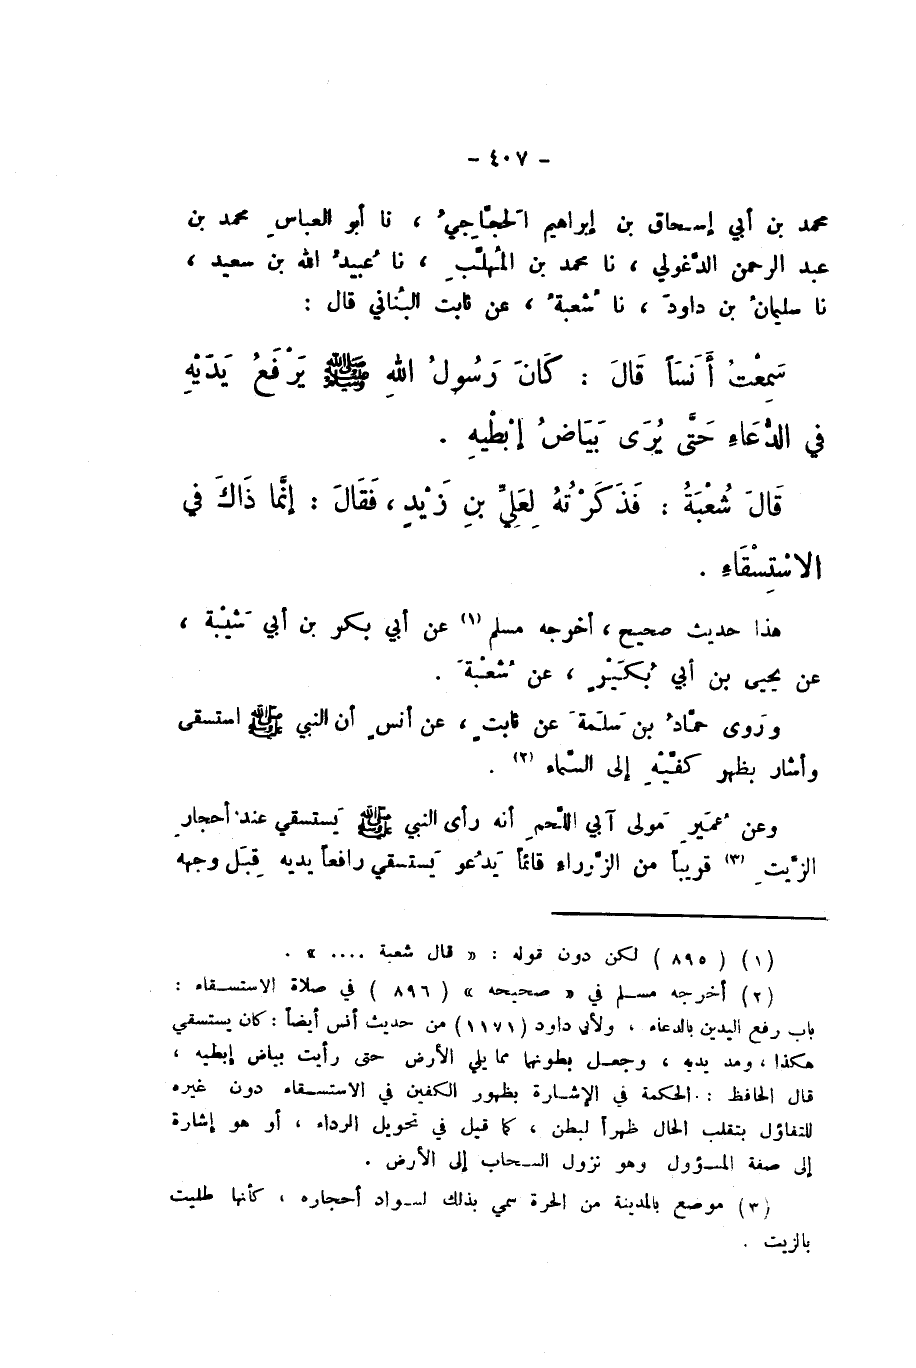 - ٤٠٧ -
محمد بن أبي إسحاق بن إبراهيم الحجّاجيُ ، نا أبو العباسِ محمد بن
عبد الرحمن الدَّغولي ، نا محمد بن المُهلَّبِ ، نا عُبيدُ الله بن سعيد ،
نا سليمانُ بن داودَ ، نا شُعبةُ ، عن ثابت البُناني قال :
سَمِعْتُ أَنَسَاً قَالَ : كَانَ رَسُولُ اللهِ ﷺ يَرْفَعُ يَدَيْهِ
في الدُّعَاءِ حَتَّى يُرَى بَيَاضُ إِبْطَيْهِ .
قَالَ شُعْبَةُ : فَذَكَرْتُهُ لِعَلِيِّ بنِ زَيْدٍ ، فَقَالَ : إِنَّمَا ذَاكَ في
الاسْتِسْقَاءِ .
هذا حديث صحيح ، أخرجه مسلم (١) عن أبي بكر بن أبي شَيْبة ،
عن يحيى بن أبي بُكَيْرٍ ، عن شُعْبَةَ .
ورَوى حمّادُ بن سَلَمةَ عن ثابتٍ ، عن أنسٍ أن النبي ﷺ استسقى
وأشار بظهر كفّيْهِ إلى السّماء (٢) .
وعن عُمَيرٍ مَولى آبي اللَّحمِ أنه رأى النبي ﷺ يَستسقي عند أحجارِ
الزَّيتِ (٣) قريباً من الزَّوراء قائماً يَدعُو يَستسقي رافعاً يديه قِبَل وجهه
(١) ( ٨٩٥ ) لكن دون قوله : « قال شعبة .... » .
(٢) أخرجه مسلم في « صحيحه » ( ٨٩٦ ) في صلاة الاستسقاء :
باب رفع اليدين بالدعاء ، ولأبي داود (١١٧١) من حديث أنس أيضاً : كان يستسقي
هكذا ، ومد يديه ، وجعل بطونها مما يلي الأرض حتى رأيت بياض إبطيه ،
قال الحافظ : الحكمة في الإشارة بظهور الكفين في الاستسقاء دون غيره
للتفاؤل بتقلب الحال ظهراً لبطن ، كما قيل في تحويل الرداء ، أو هو إشارة
إلى صفة المسؤول وهو نزول السحاب إلى الأرض .
(٣) موضع بالمدينة من الحرة سمي بذلك لسواد أحجاره ، كأنها طليت
بالزيت .